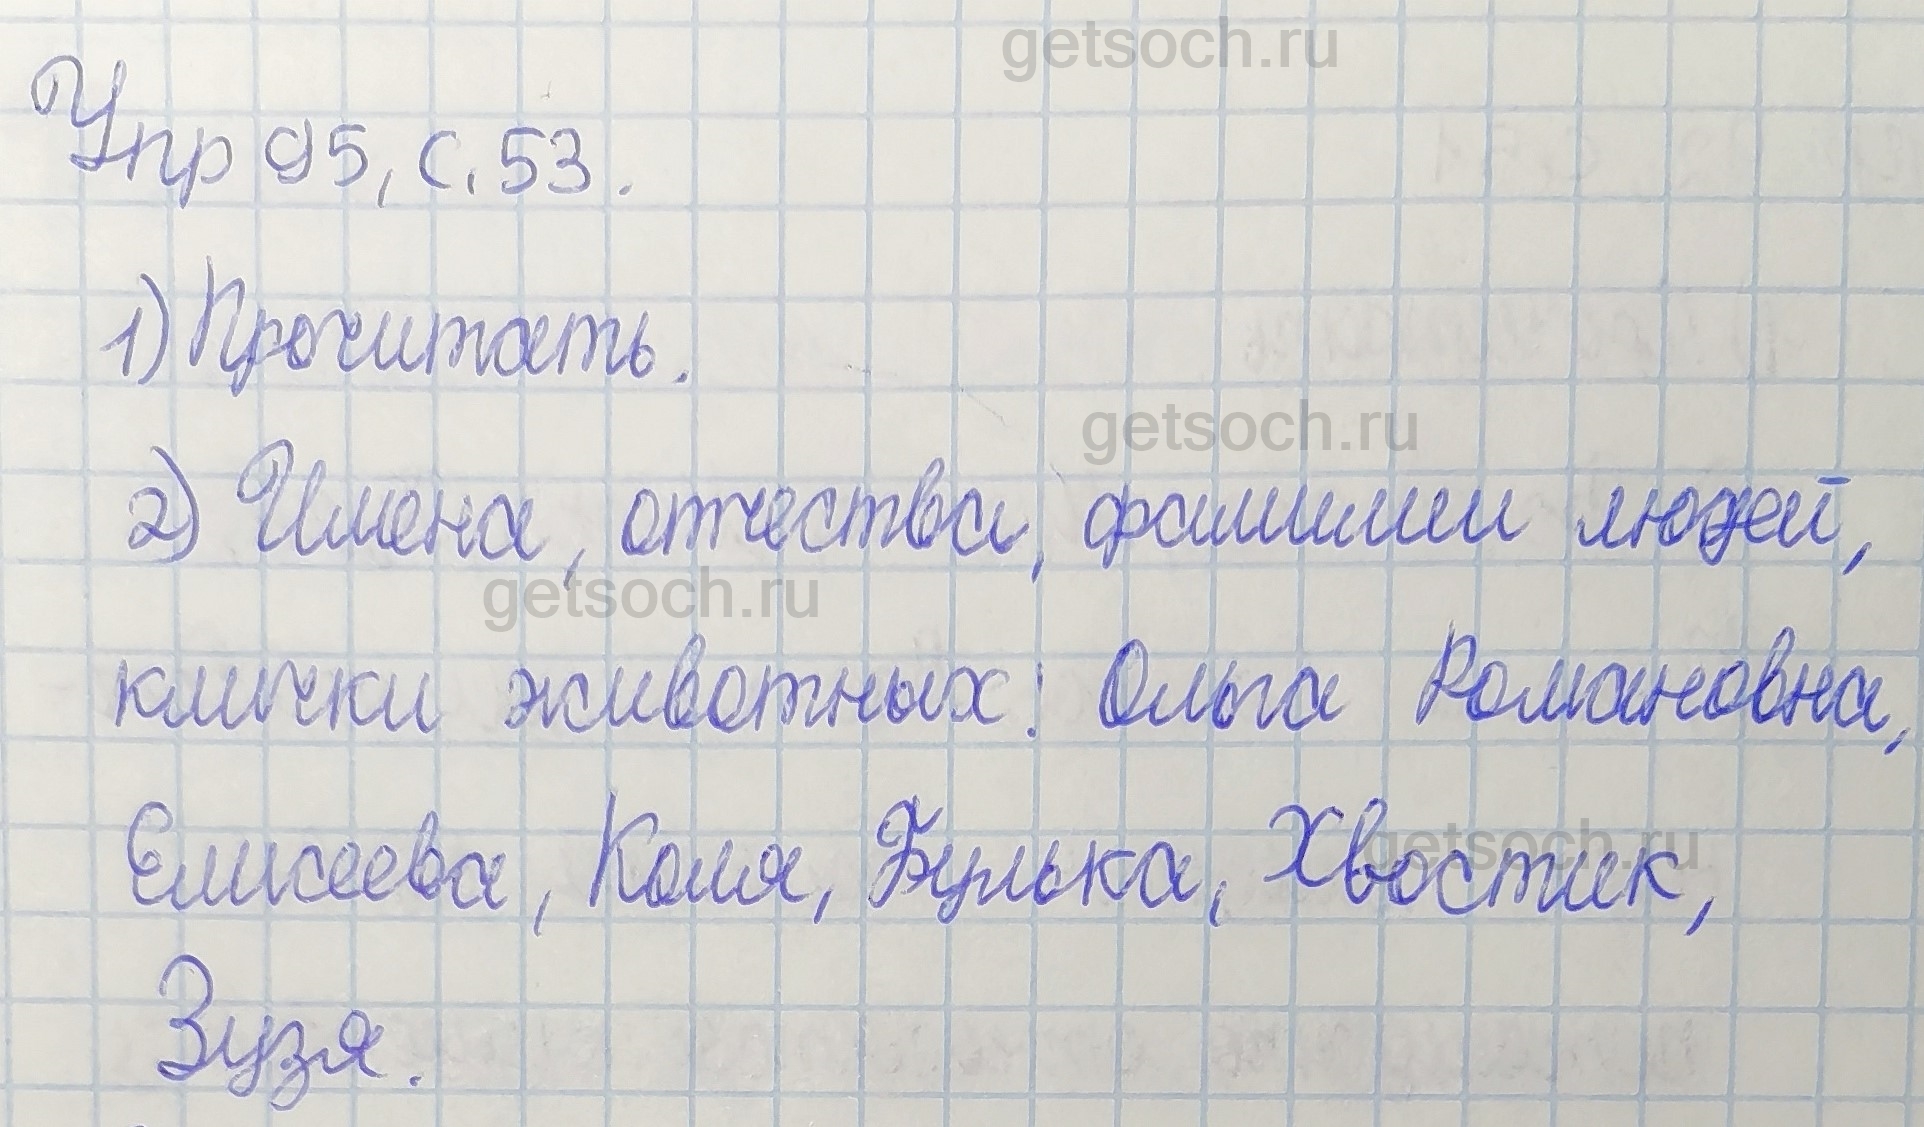 getsoch.ru
Упр 95, с. 53.
1) Прочитать.
getsoch.ru
2) Имена, отчества, фамилии людей,
getsoch.ru
клички животных: Ольга Романовна,
Елисеева, Коля, Булька, Хвостик,
getsoch.ru
Зузя.